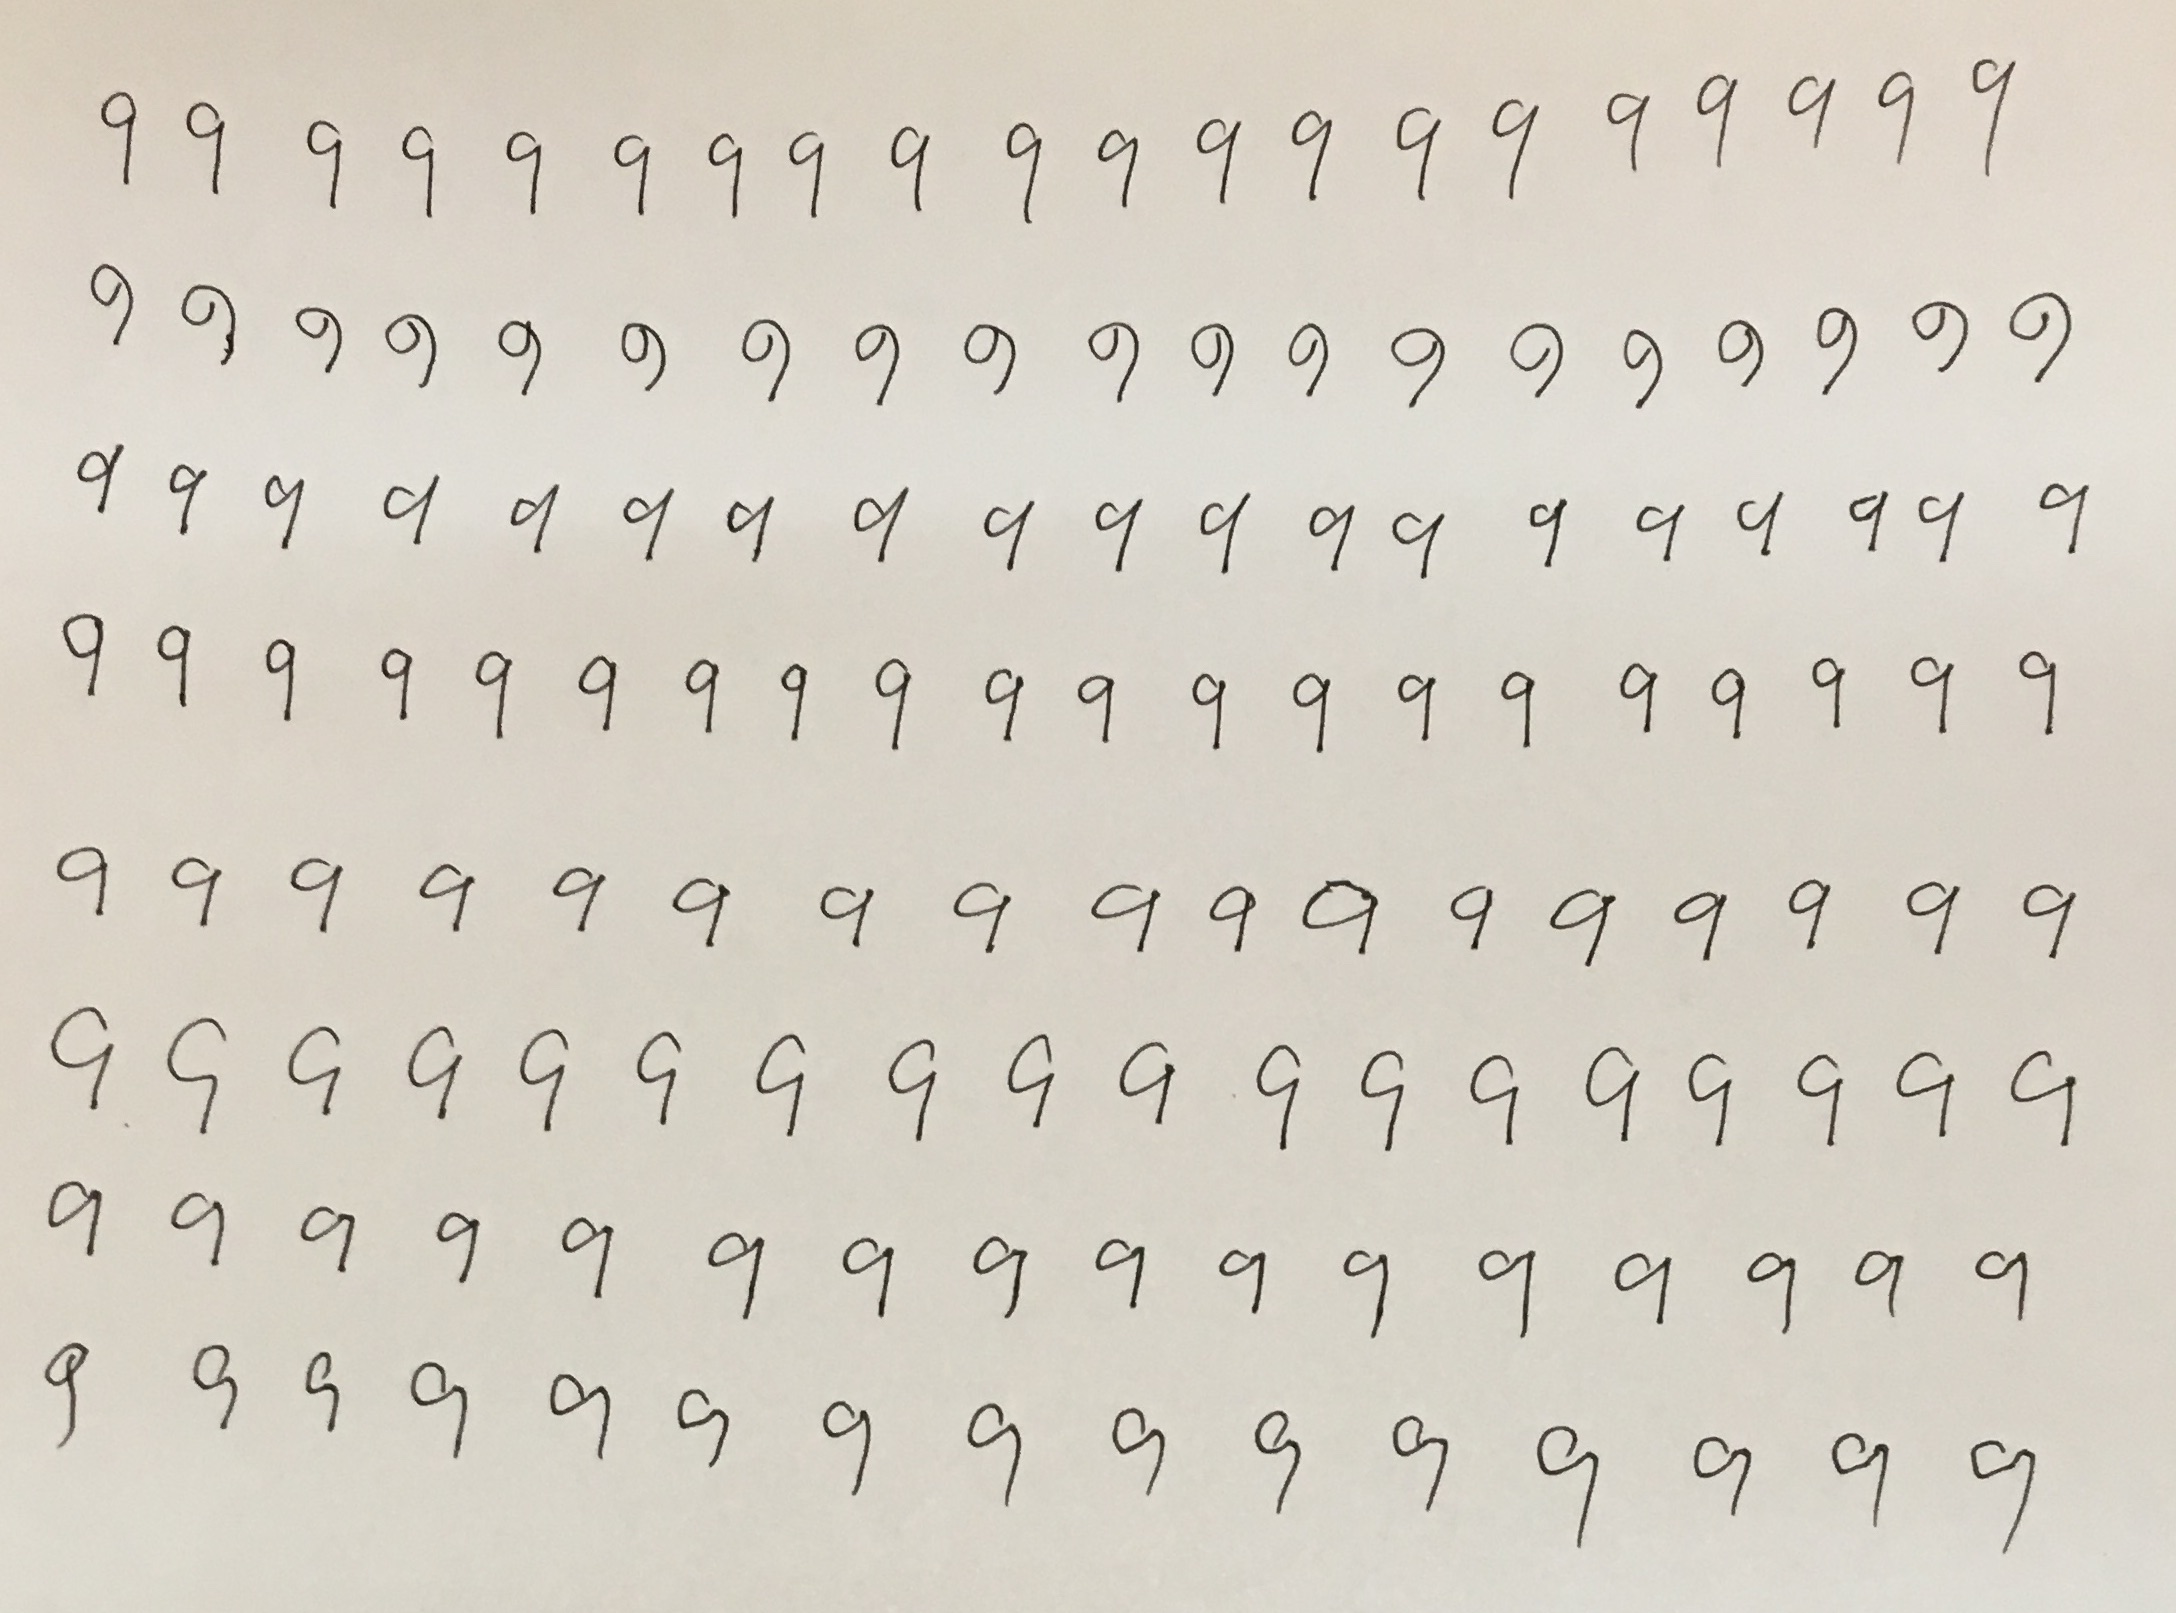 9 9 9 9 9 9 9 9 9 9 9 9 9 9 9 9 9 9 9 9
9 9 9 9 9 9 9 9 9 9 9 9 9 9 9 9 9 9 9
9 9 9 9 9 9 9 9 9 9 9 9 9 9 9 9 9 9 9
9 9 9 9 9 9 9 9 9 9 9 9 9 9 9 9 9 9 9 9
9 9 9 9 9 9 9 9 9 9 9 9 9 9 9 9 9
9 9 9 9 9 9 9 9 9 9 9 9 9 9 9 9 9 9
9 9 9 9 9 9 9 9 9 9 9 9 9 9 9 9
9 9 9 9 9 9 9 9 9 9 9 9 9 9 9